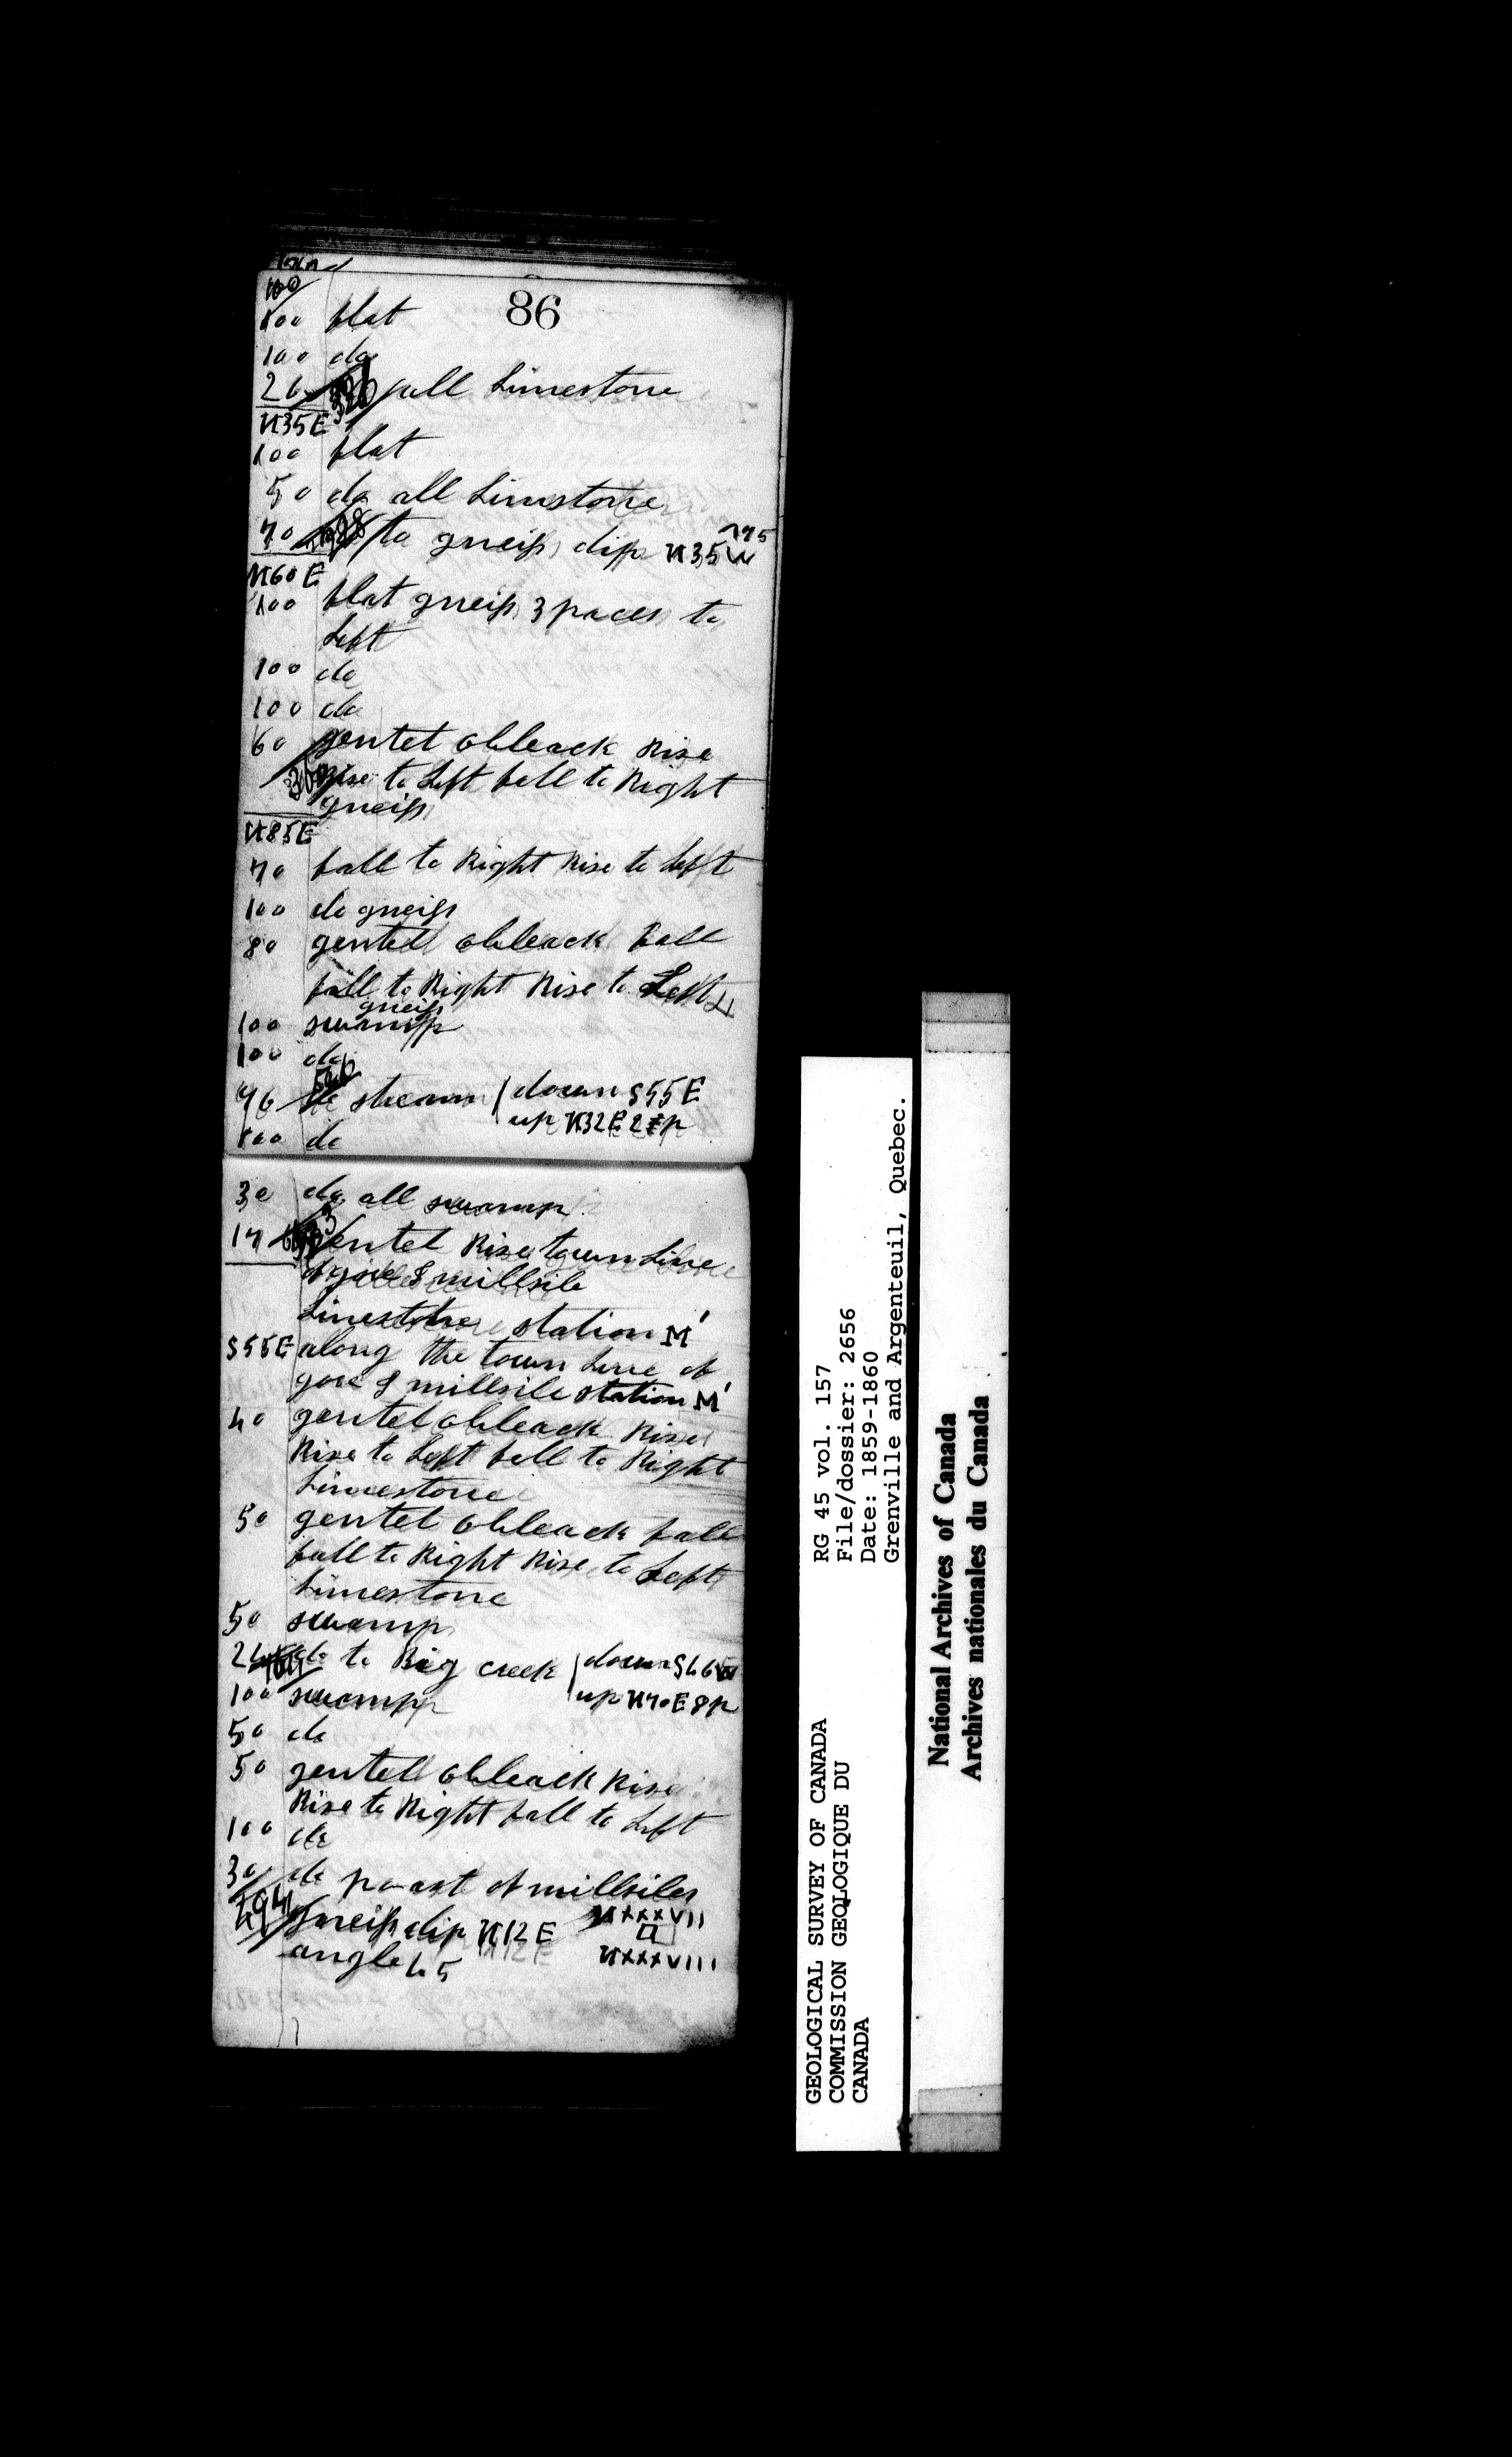 86
100 flat
100 do
26 326 all Limestone
N35E
100 flat
50 do all Limstone
70 to gneiss dip N35W
N60E
100 flat gneiss 3 paces to
Left
100 do
100 do
60 gentel obleack Rise
Rise to Left fall to Right
gneiss
N85E
70 fall to Right Rise to Left
100 do gneiss
80 gentell obleack fall
fall to Right Rise to Left
gneiss
100 swamp
100 do
96 do stream (down S55E
up N32E 2 p
100 do
30 do all swamp
17 gentel Rise town Line
of gore & millsile
Limestone station M'
S55E along the town Line of
gore & millsile station M'
40 gentel obleack Rise
Rise to Left fall to Right
Limestone
50 gentel obleack fall
fall to Right Rise to Left
Limestone
50 swamp
24 do to Big creek (down S46W
up N70E 8p
100 swamp
50 do
50 gentell obleack Rise
Rise to Right fall to Left
100 do
30 do po ast of millsiles
294 gneiss dip N12E NXXXVII
angle 45 NXXXVIII
GEOLOGICAL SURVEY OF CANADA
COMMISSION GEOLOGIQUE DU
CANADA
RG 45 vol. 157
File/dossier: 2656
Date: 1859-1860
Grenville and Argenteuil, Quebec.
National Archives of Canada
Archives nationales du Canada